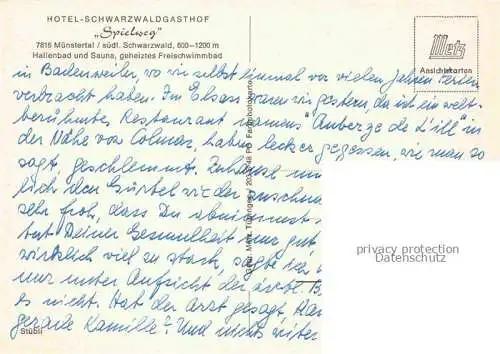 HOTEL-SCHWARZWALDGASTHOF
„Spielweg“
7816 Münstertal / südl. Schwarzwald, 600–1200 m
Hallenbad und Sauna, geheiztes Freischwimmbad
Metz
Ansichtskarten
in Badenweiler, wo wir selbst einmal vor vielen Jahren Ferien
verbracht haben. Im Elsass waren wir gestern, da ist ein welt-
berühmtes Restaurant namens "Auberge de L'ill" in
der Nähe von Colmar, haben lecker gegessen, wie man so
sagt, geschlemmt.
lich den Gürtel wieder
sehr froh, dass Du
tut Deiner Gesundheit nur gut,
wirklich viel zu stark, sagte ich
nur unter Aufsicht der ärztl. B
es nicht. Hat der Arzt gesagt, Ha
gerade Kamille? Und nichts weiter
Stübli
Gebr. Metz, Tübingen
Farbphotokarten
privacy protection
Datenschutz